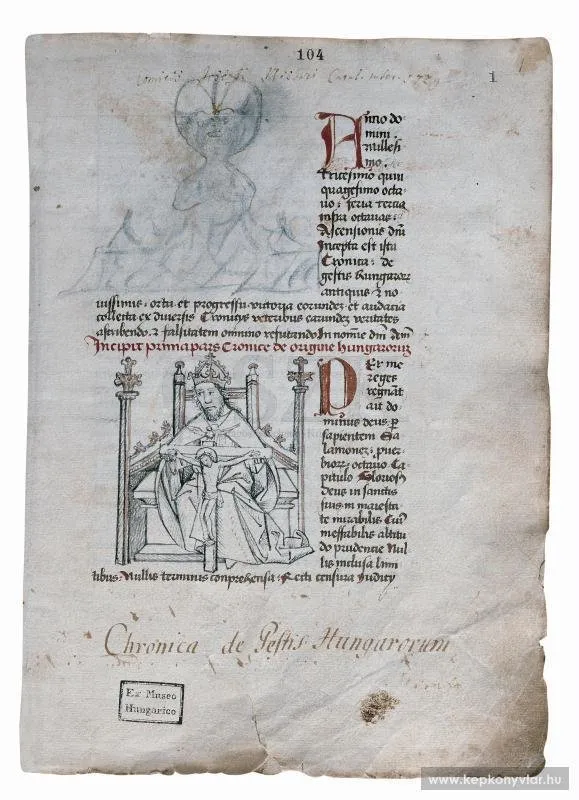 104
1
Anno do
mini
millesi
mo.
Tricesimo quin
quagesimo octa
uo: feria tertia
infra octauas
Ascensionis dni
Incepta est ista
Cronica: de
gestis hungaror
antiquis &amp; no
uissimis. ortu et progressu victoria eorundez et audacia
collecta ex diuersis Cronicis veteribus earundez veritates
ascribendo. &amp; falsitatem omnino refutando In nomine dni
Incipit prima pars Cronice de origine hungaroruz
Per me
reges
regnat
ait do
minus deus p
sapientem Sa
lamonez. puer
biorz. octauo Ca
pitulo Glorios
deus in sanctis
suis in maiesta
te mirabilis Cui
ineffabilis altitu
do prudentie Nul
lis inclusa limi
tibus. Nullis terminis conprehensa. Recti censura Iudicy
Chronica de Gestis Hungarorum
Ex Museo
Hungarico
www.kepkonyvtar.hu